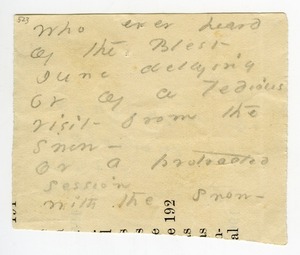 523
Who ever heard
of the Blest -
June delaying
Or of a Tedious
visit - from the
Snow -
Or a protracted
session
with the Snow -
191
s s e 192
as a-
al